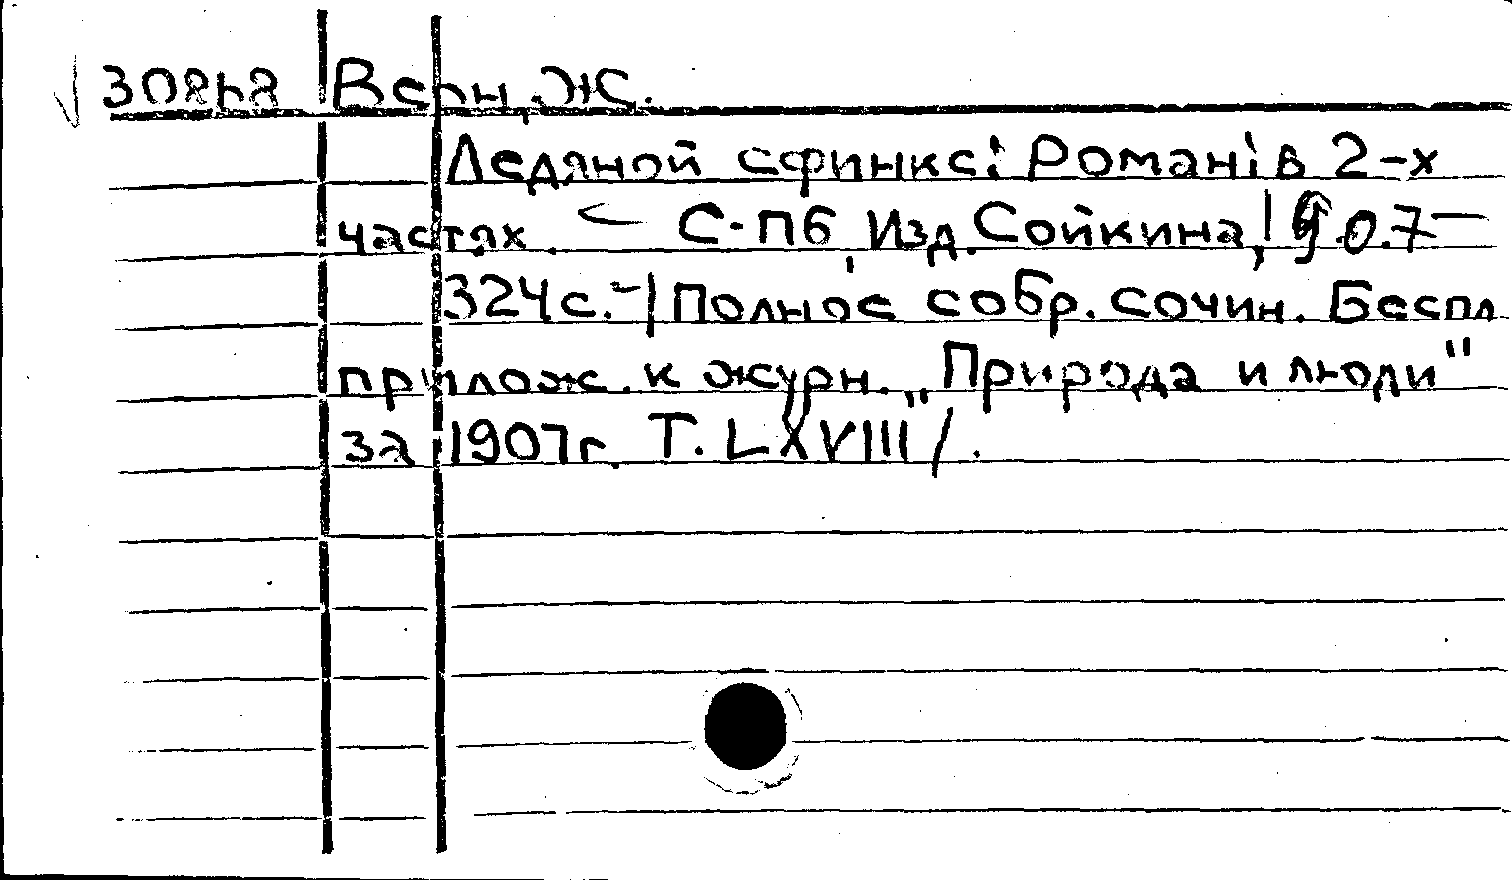 Верн, Ж.
Ледяной сфинкс: Роман в 2-х
частях. — С-Пб, Изд. Сойкина, 1907 —
324 с. – /Полное собр. сочин. Беспл
прилож. к журн. „Природа и люди"
за 1907 г. Т. LXVIII/.